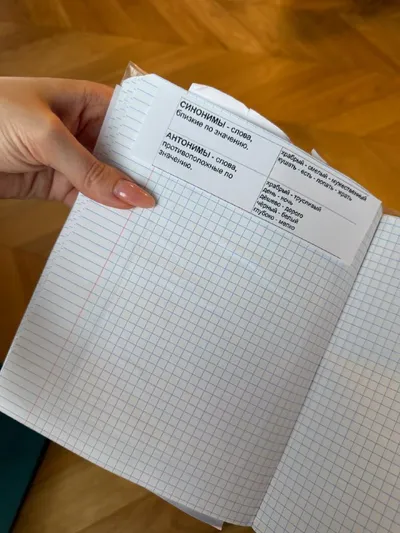 СИНОНИМЫ - слова,
близкие по значению.
храбрый - смелый - мужественный
кушать - есть - лопать - жрать
АНТОНИМЫ - слова,
противоположные по
значению.
храбрый - трусливый
день - ночь
дёшево - дорого
чёрный - белый
глубоко - мелко